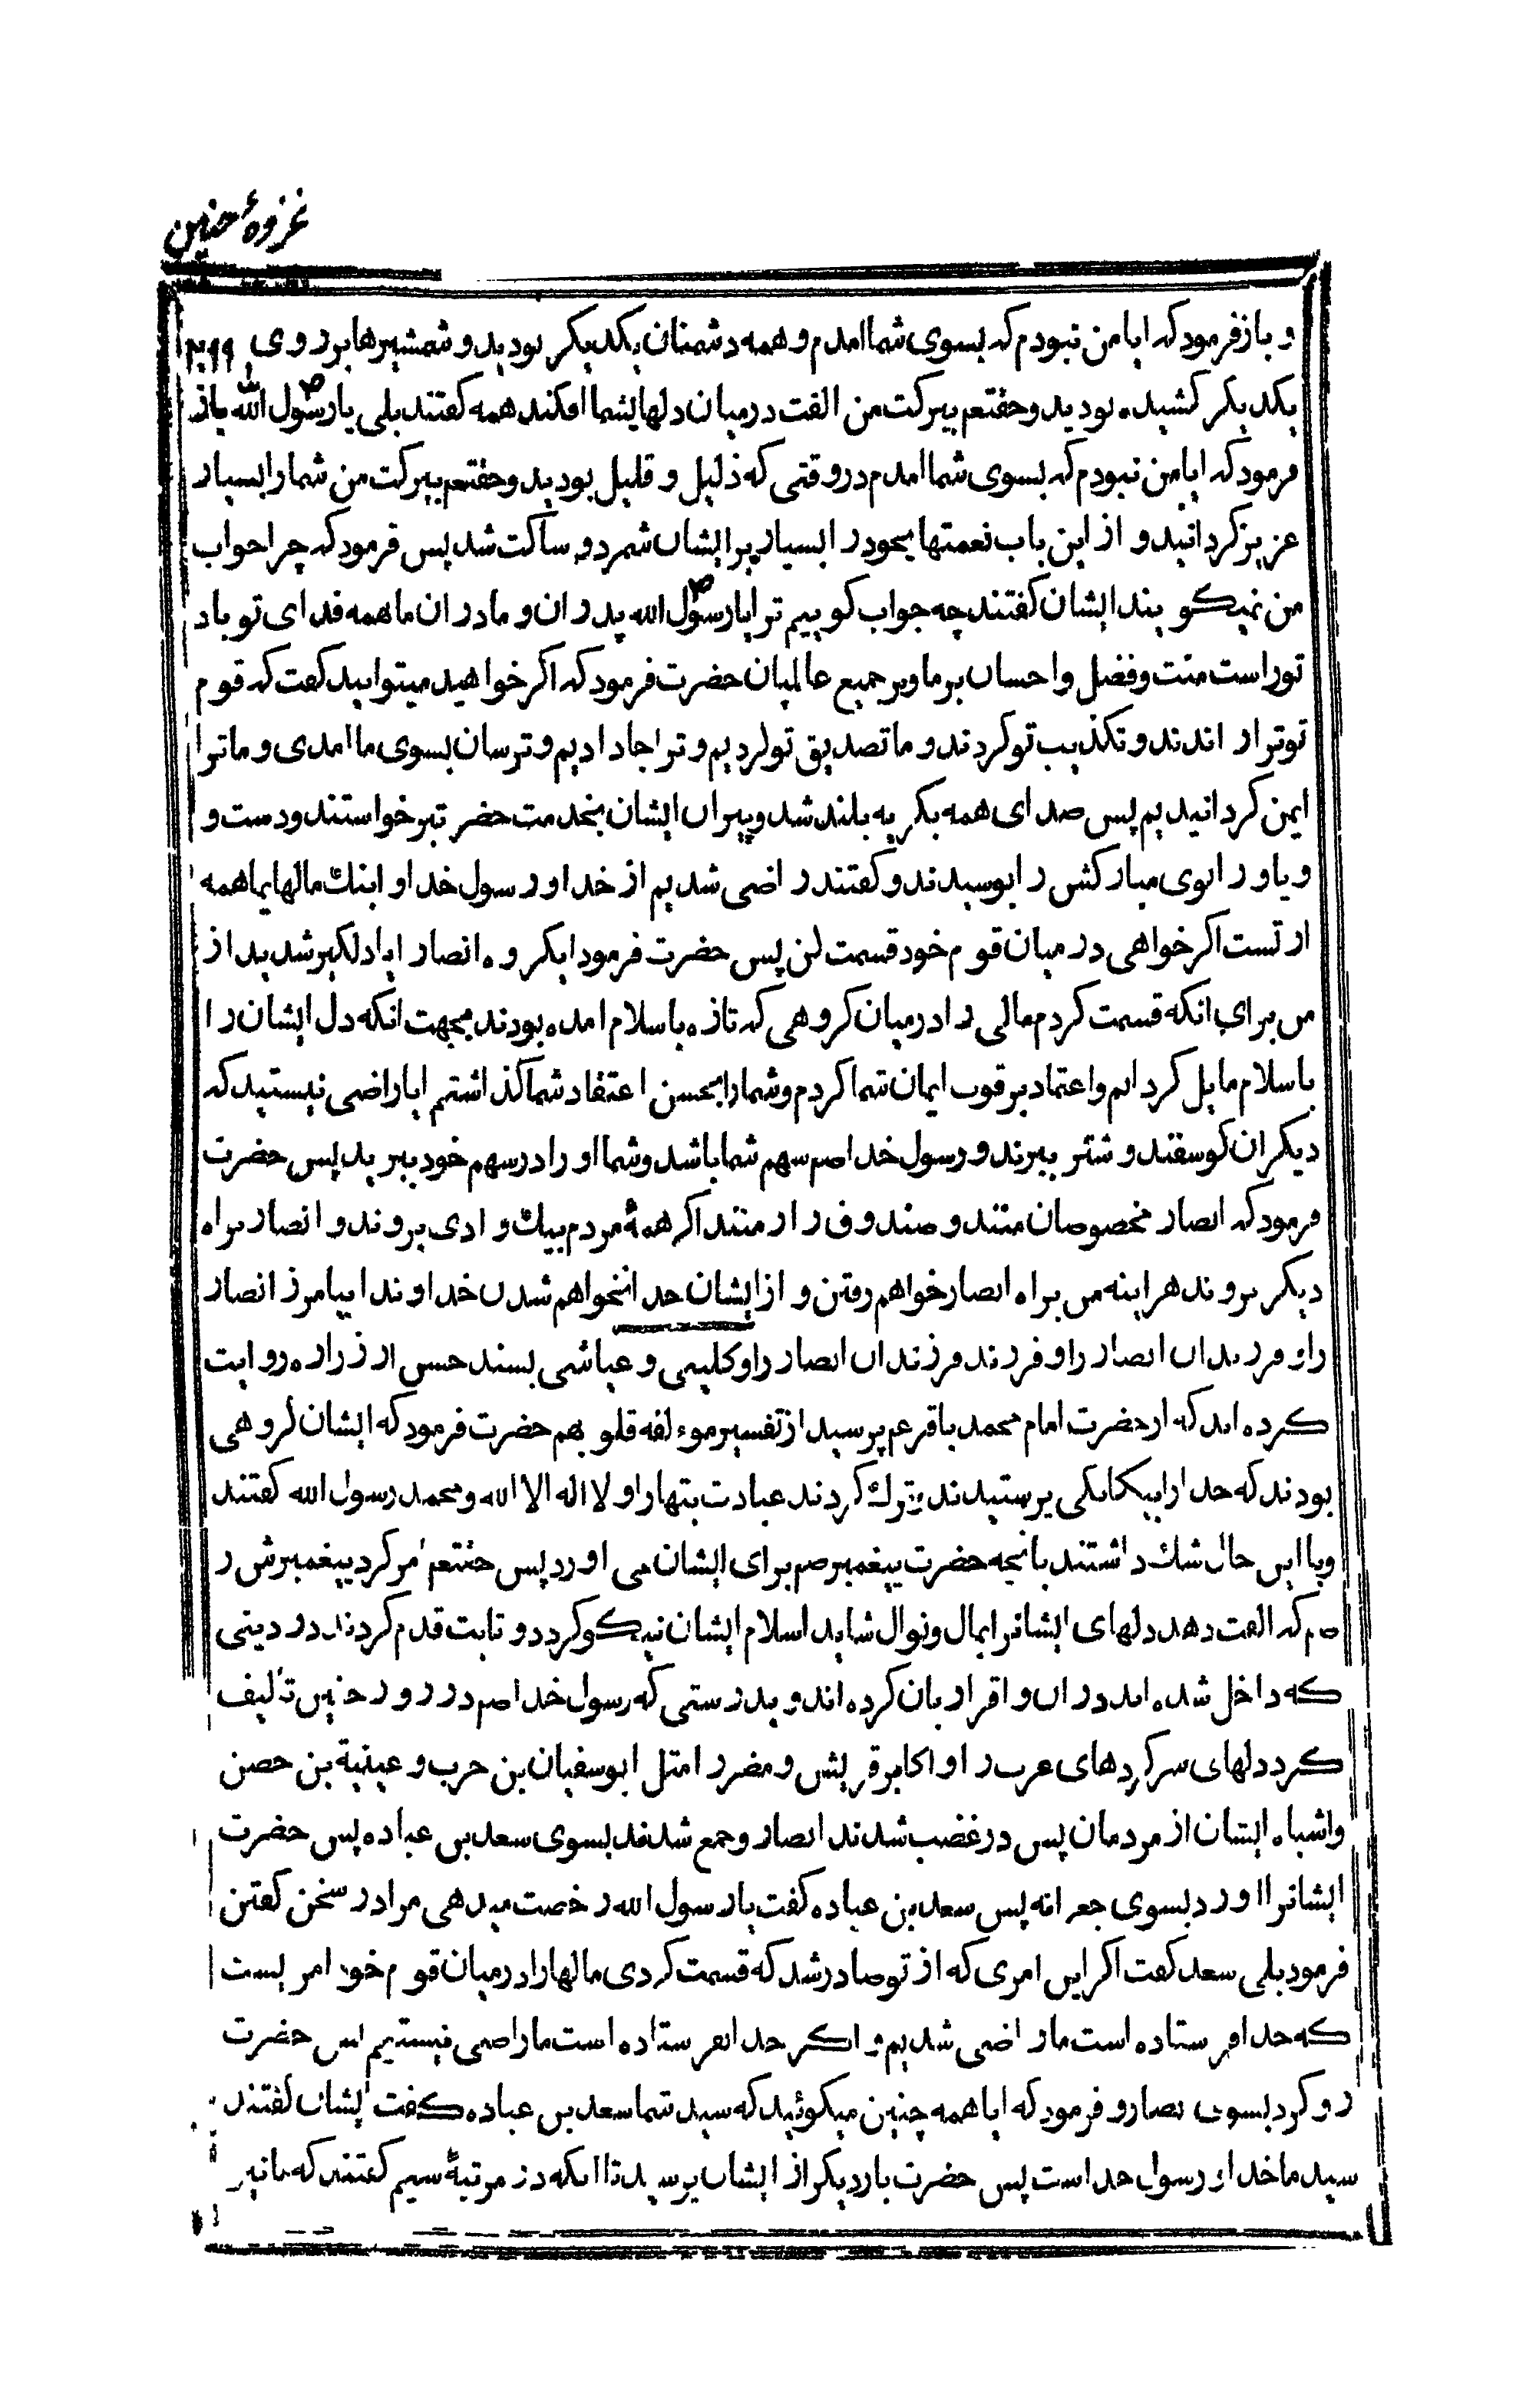 غزوهٔ حنین
و باز فرمود که ایا من نبودم که بسوی شما امدم و همه دشمنان یکدیکر بودید و شمشیرها بر روی
یکدیکر کشیده بودید و حقتعم ببرکت من الفت در میان دلهایشما افکند همه کفتند بلی یا رسول الله باز
فرمود که ایا من نبودم که بسوی شما امدم در وقتی که ذلیل و قلیل بودید و حقتعم ببرکت من شما را بسیار
عزیز کردانید و از این باب نعمتهایخود را بسیار برایشان شمرد و ساکت شد پس فرمود که چرا جواب
من نمیکویند ایشان کفتند چه جواب کوییم ترا یا رسول الله پدران و مادران ما همه فدای تو باد
توراست منت و فضل و احسان بر ما و بر جمیع عالمیان حضرت فرمود که اکر خواهید میتوانید کفت که قوم
تو ترا راندند و تکذیب تو کردند و ما تصدیق تو کردیم و ترا جا دادیم و ترسان بسوی ما امدی و ما ترا
ایمن کردانیدیم پس صدای همه بکریه بلند شد و پیران ایشان بخدمت حضرت برخواستند و دست و
و پا و زانوی مبارکش را بوسیدند و کفتند راضی شدیم از خدا و رسول خدا و اینك مالهایما همه
از تست اکر خواهی در میان قوم خود قسمت کن پس حضرت فرمود ایکروه انصار ایا دلکیر شدید از
من برای انکه قسمت کردم مالی را در میان کروهی که تازه باسلام امده بودند بجهت انکه دل ایشان را
باسلام مایل کردانم و اعتماد بر قوت ایمان شما کردم و شما را بحسن اعتقاد شما کذاشتم ایا راضی نیستید که
دیکران کوسفند و شتر ببرند و رسول خدا صم سهم شما باشد و شما او را در سهم خود ببرید پس حضرت
فرمود که انصار مخصوصان منند و صندوق راز منند اکر همهٔ مردم بیك وادی بروند و انصار براه
دیکر بروند هراینه من براه انصار خواهم رفتن و از ایشان جدا نخواهم شدن خداوندا بیامرز انصار
را و فرزندان انصار را و فرزند فرزندان انصار را و کلینی و عیاشی بسند حسن از زراره روایت
کرده اند که از حضرت امام محمد باقر عم پرسید از تفسیر موءلفه قلوبهم حضرت فرمود که ایشان کروهی
بودند که خدا را بیکانکی پرستیدند و ترك کردند عبادت بتها را و لا اله الا الله و محمد رسول الله کفتند
و با این حال شك داشتند بانچه حضرت پیغمبر صم برای ایشان می اورد پس حقتعم امر کرد پیغمبرش را
صم که الفت دهد دلهای ایشانرا بمال و نوال شاید اسلام ایشان نیکو کردد و ثابت قدم کردند در دینی
که داخل شده اند در ان و اقرار بان کرده اند و بدرستی که رسول خدا صم در روز حنین تألیف
کرد دلهای سرکردهای عرب را و اکابر قریش و مضر را مثل ابوسفیان بن حرب و عیینة بن حصن
و اشباه ایشان از مردمان پس در غضب شدند انصار و جمع شدند بسوی سعد بن عباده پس حضرت
ایشانرا اورد بسوی جعرانه پس سعد بن عباده کفت یا رسول الله رخصت میدهی مرا در سخن کفتن
فرمود بلی سعد کفت اکر این امری که از تو صادر شد که قسمت کردی مالها را در میان قوم خود امریست
که خدا فرستاده است ما راضی شدیم و اکر خدا نفرستاده است ما راضی نیستیم پس حضرت
رو کرد بسوی انصار و فرمود که ایا همه چنین میکوئید که سید شما سعد بن عباده کفت ایشان کفتند
سید ما خدا و رسول خدا است پس حضرت بار دیکر از ایشان پرسید تا انکه در مرتبهٔ سیم کفتند که ما نیز